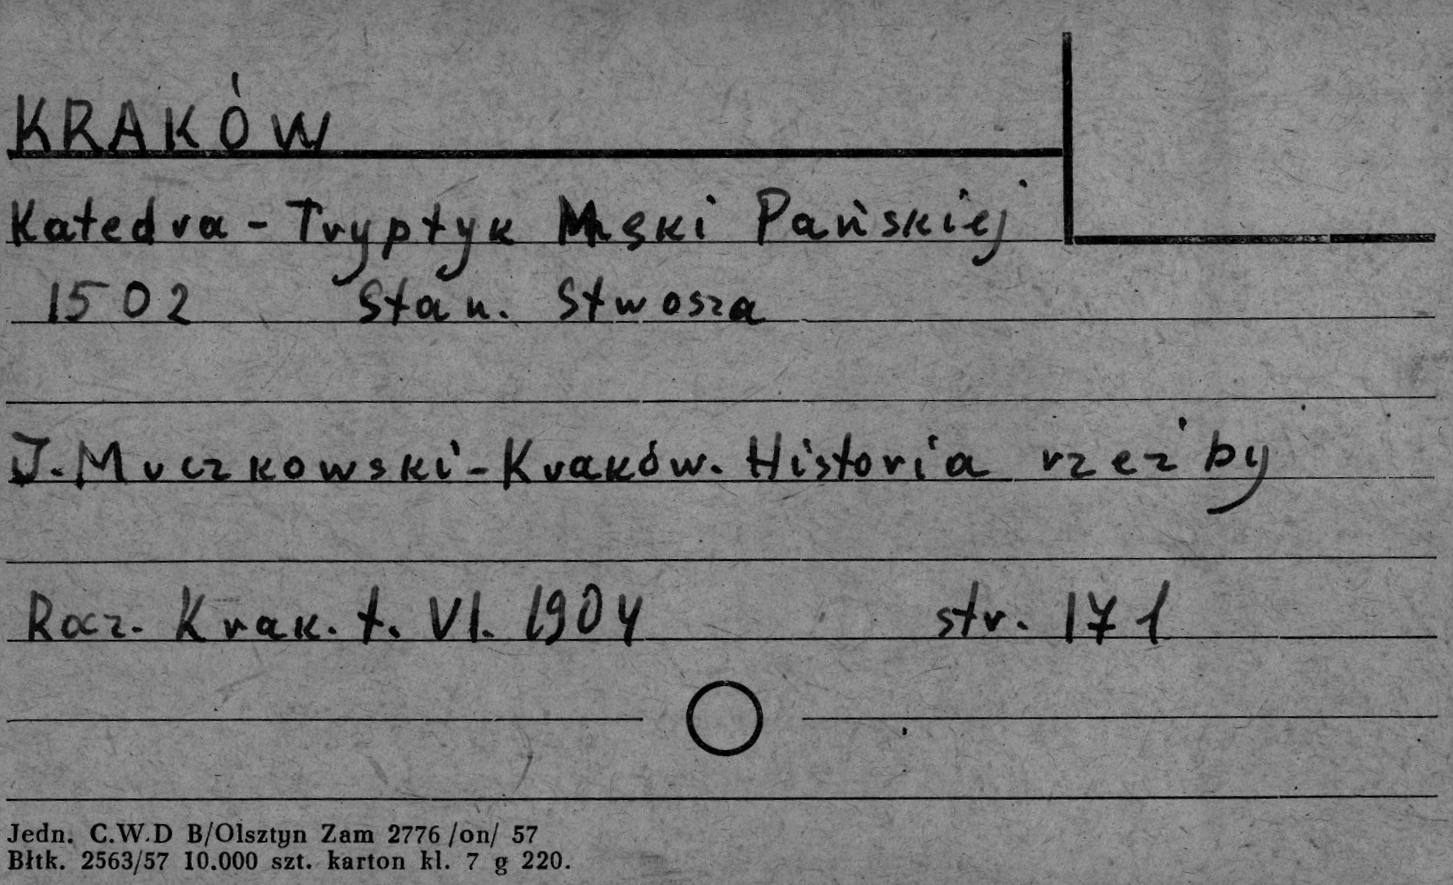 KRAKÓW
Katedra - Tryptyk Męki Pańskiej
1502 Stan. Stwosza
J. Muczkowski - Kraków. Historia rzeźby
Rocz. Krak. t. VI. 1904 str. 171
Jedn. C.W.D B/Olsztyn Zam 2776 /on/ 57
Błtk. 2563/57 10.000 szt. karton kl. 7 g 220.